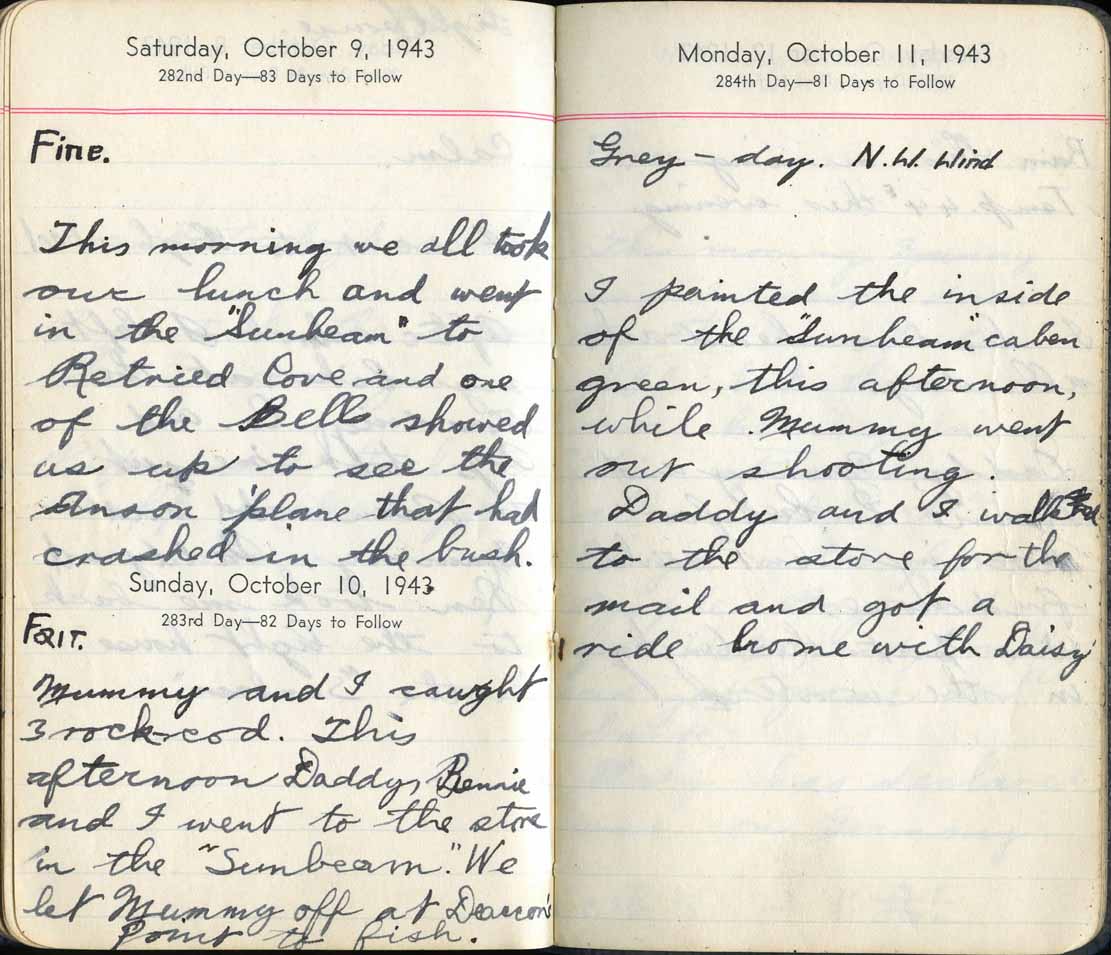 Saturday, October 9, 1943
282nd Day—83 Days to Follow
Fine.
This morning we all took
our lunch and went
in the "Sunbeam" to
Retried Cove and one
of the Bells showed
us up to see the
Anson 'plane that had
crashed in the bush.
Sunday, October 10, 1943
283rd Day—82 Days to Follow
Fair.
Mummy and I caught
3 rock-cod. This
afternoon Daddy, Bennie
and I went to the store
in the "Sunbeam". We
let Mummy off at Deacon's
Point to fish.
Monday, October 11, 1943
284th Day—81 Days to Follow
Grey - day. N.W. Wind
I painted the inside
of the "Sunbeam" caben
green, this afternoon,
while Mummy went
out shooting.
Daddy and I walked
to the store for the
mail and got a
ride home with Daisy